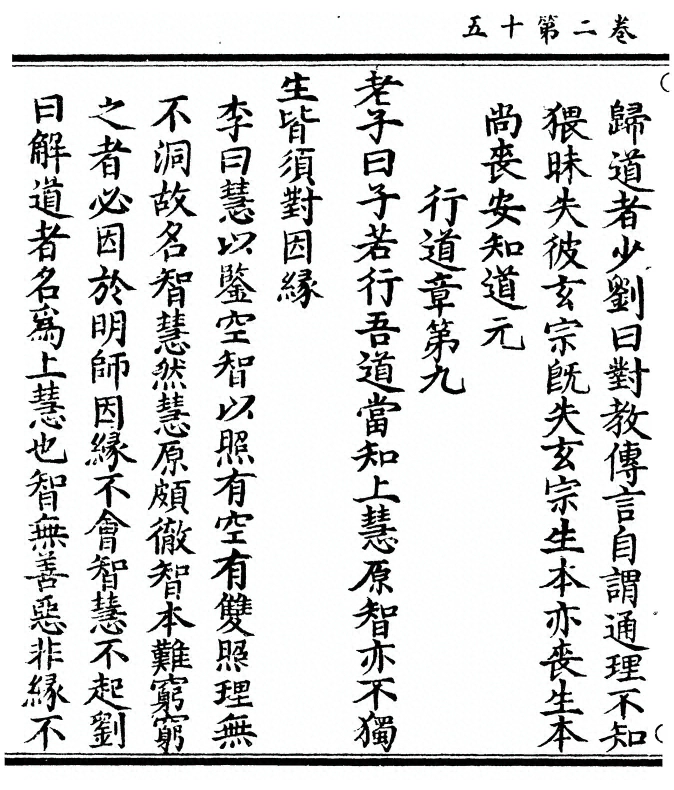 卷二第十五
歸道者少劉曰對教傳言自謂通理不知
猥昧失彼玄宗旣失玄宗生本亦喪生本
尚喪安知道元
行道章第九
老子曰子若行吾道當知上慧原智亦不獨
生皆須對因緣
李曰慧以鑒空智以照有空有雙照理無
不洞故名智慧然慧原頗徹智本難窮窮
之者必因於明師因緣不會智慧不起劉
曰解道者名爲上慧也智無善惡非緣不